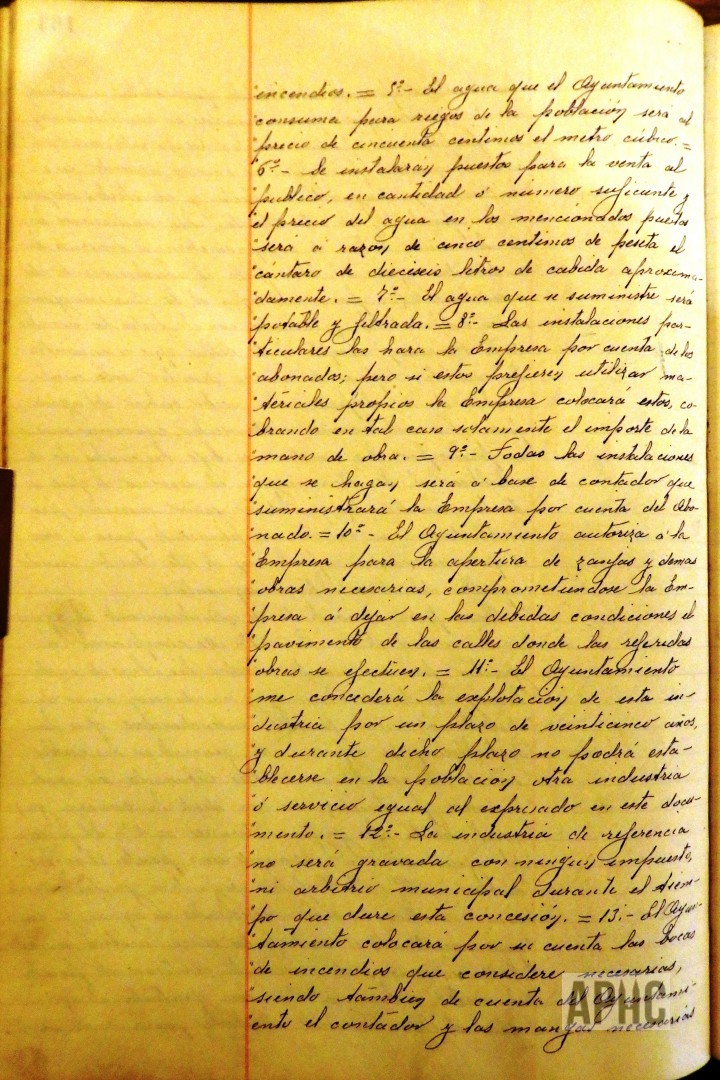 "incendios. = 5ª- El agua que el Ayuntamiento
"consuma para riegos de la población será al
"precio de cincuenta centimos el metro cúbico. =
"6ª- Se instalarán puestos para la venta al
"publico, en cantidad ó numero suficiente y
"el precio del agua en los mencionados puestos
"será á razón de cinco centimos de peseta el
"cántaro de dieciseis litros de cabida aproxima-
"damente. = 7ª- El agua que se suministre será
"potable y filtrada. = 8ª- Las instalaciones par-
"ticulares las hara la Empresa por cuenta de los
"abonados; pero si estos prefieren utilizar ma-
"tériales propios la Empresa colocará estos, co-
"brando en tal caso solamente el importe de la
"mano de obra. = 9ª- Todas las instalaciones
"que se hagan, será á base de contador que
"suministrará la Empresa por cuenta del Abo-
"nado. = 10ª- El Ayuntamiento autoriza á la
"Empresa para la apertura de zanjas y demas
"obras necesarias, comprometiendose la Em-
"presa á dejar en las debidas condiciones el
"pavimento de las calles donde las referidas
"obras se efectuen. = 11ª- El Ayuntamiento
"me concederá la explotación de esta in-
"dustria por un plazo de veinticinco años,
"y durante dicho plazo no podrá esta-
"blecerse en la población otra industria
"ó servicio egual al expresado en este docu-
"mento. = 12ª- La industria de referencia
"no será gravada con ningun impuesto,
"ni arbitrio municipal durante el tiem-
"po que dure esta concesión. = 13.- El Ayun-
"tamiento colocará por su cuenta las bocas
"de incendios que considere necesarias,
"siendo támbien de cuenta del Ayuntami-
"ento el contador y las mangas necesarias
APHC